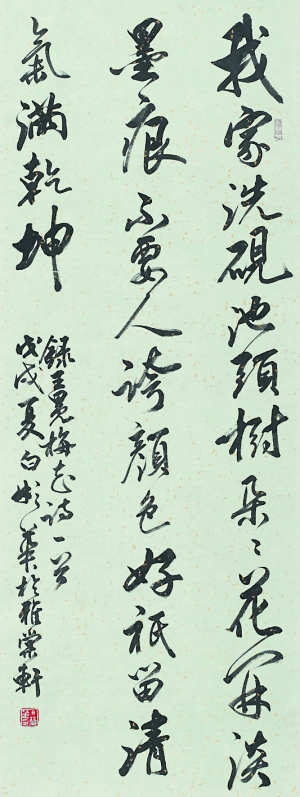 我家洗硯池頭樹朵〻花開淡
墨痕不要人誇顏色好祇留清
氣滿乾坤
錄王冕梅花詩一首
戊戌夏白彬華於雅棠軒